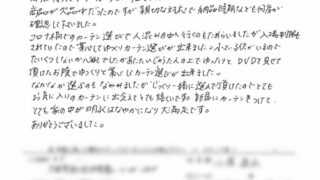 商品が欠品中だったのですが親切な対応で納品時期なども何度か
確認して下さいました。
コロナ禍でカーテン選びで人混みの中へ行くのもためらいましたが入場制限も
されていたので安心してゆっくりカーテン選びが出来ました。小さい子供がいるので
たいくつしないか心配でしたがあたいじょうぶ人の上でゆったりと DVDまで見せて
頂けたお陰でゆっくり安心しカーテン選びが出来ました。
なかなか選ぶのもなやみましたが じっくり一緒に選んで頂けたのでとても
お気に入りのカーテンに出会えてとても嬉しいです。部屋にカーテンをつけて
とても家の中が明るくはなやかになり大満足です。
ありがとうございました。